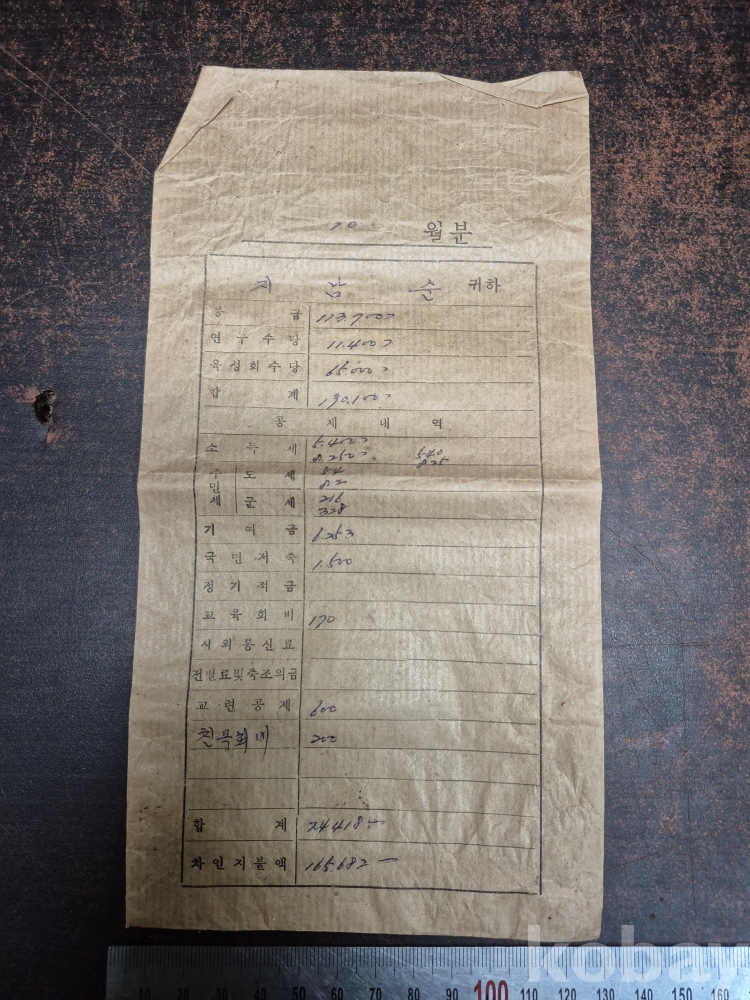 10 월분
남 순 귀하
봉 급 113.700
연구수당 11.400
육성회수당 65.000
합 계 190.100
공 제 내 역
소 득 세 5.400 540
8.250 825
주민세 도 세 54
82
군 세 216
328
기 여 금 6.253
국민저축 1.500
정기적금
교육회비 170
시외통신료
전별료및축조의금
교·련공제 600
친목회비 200
합 계 24.418
차인지불액 165.682
10 20 30 40 50 60 70 80 90 100 110 120 130 140 150 160
kobay